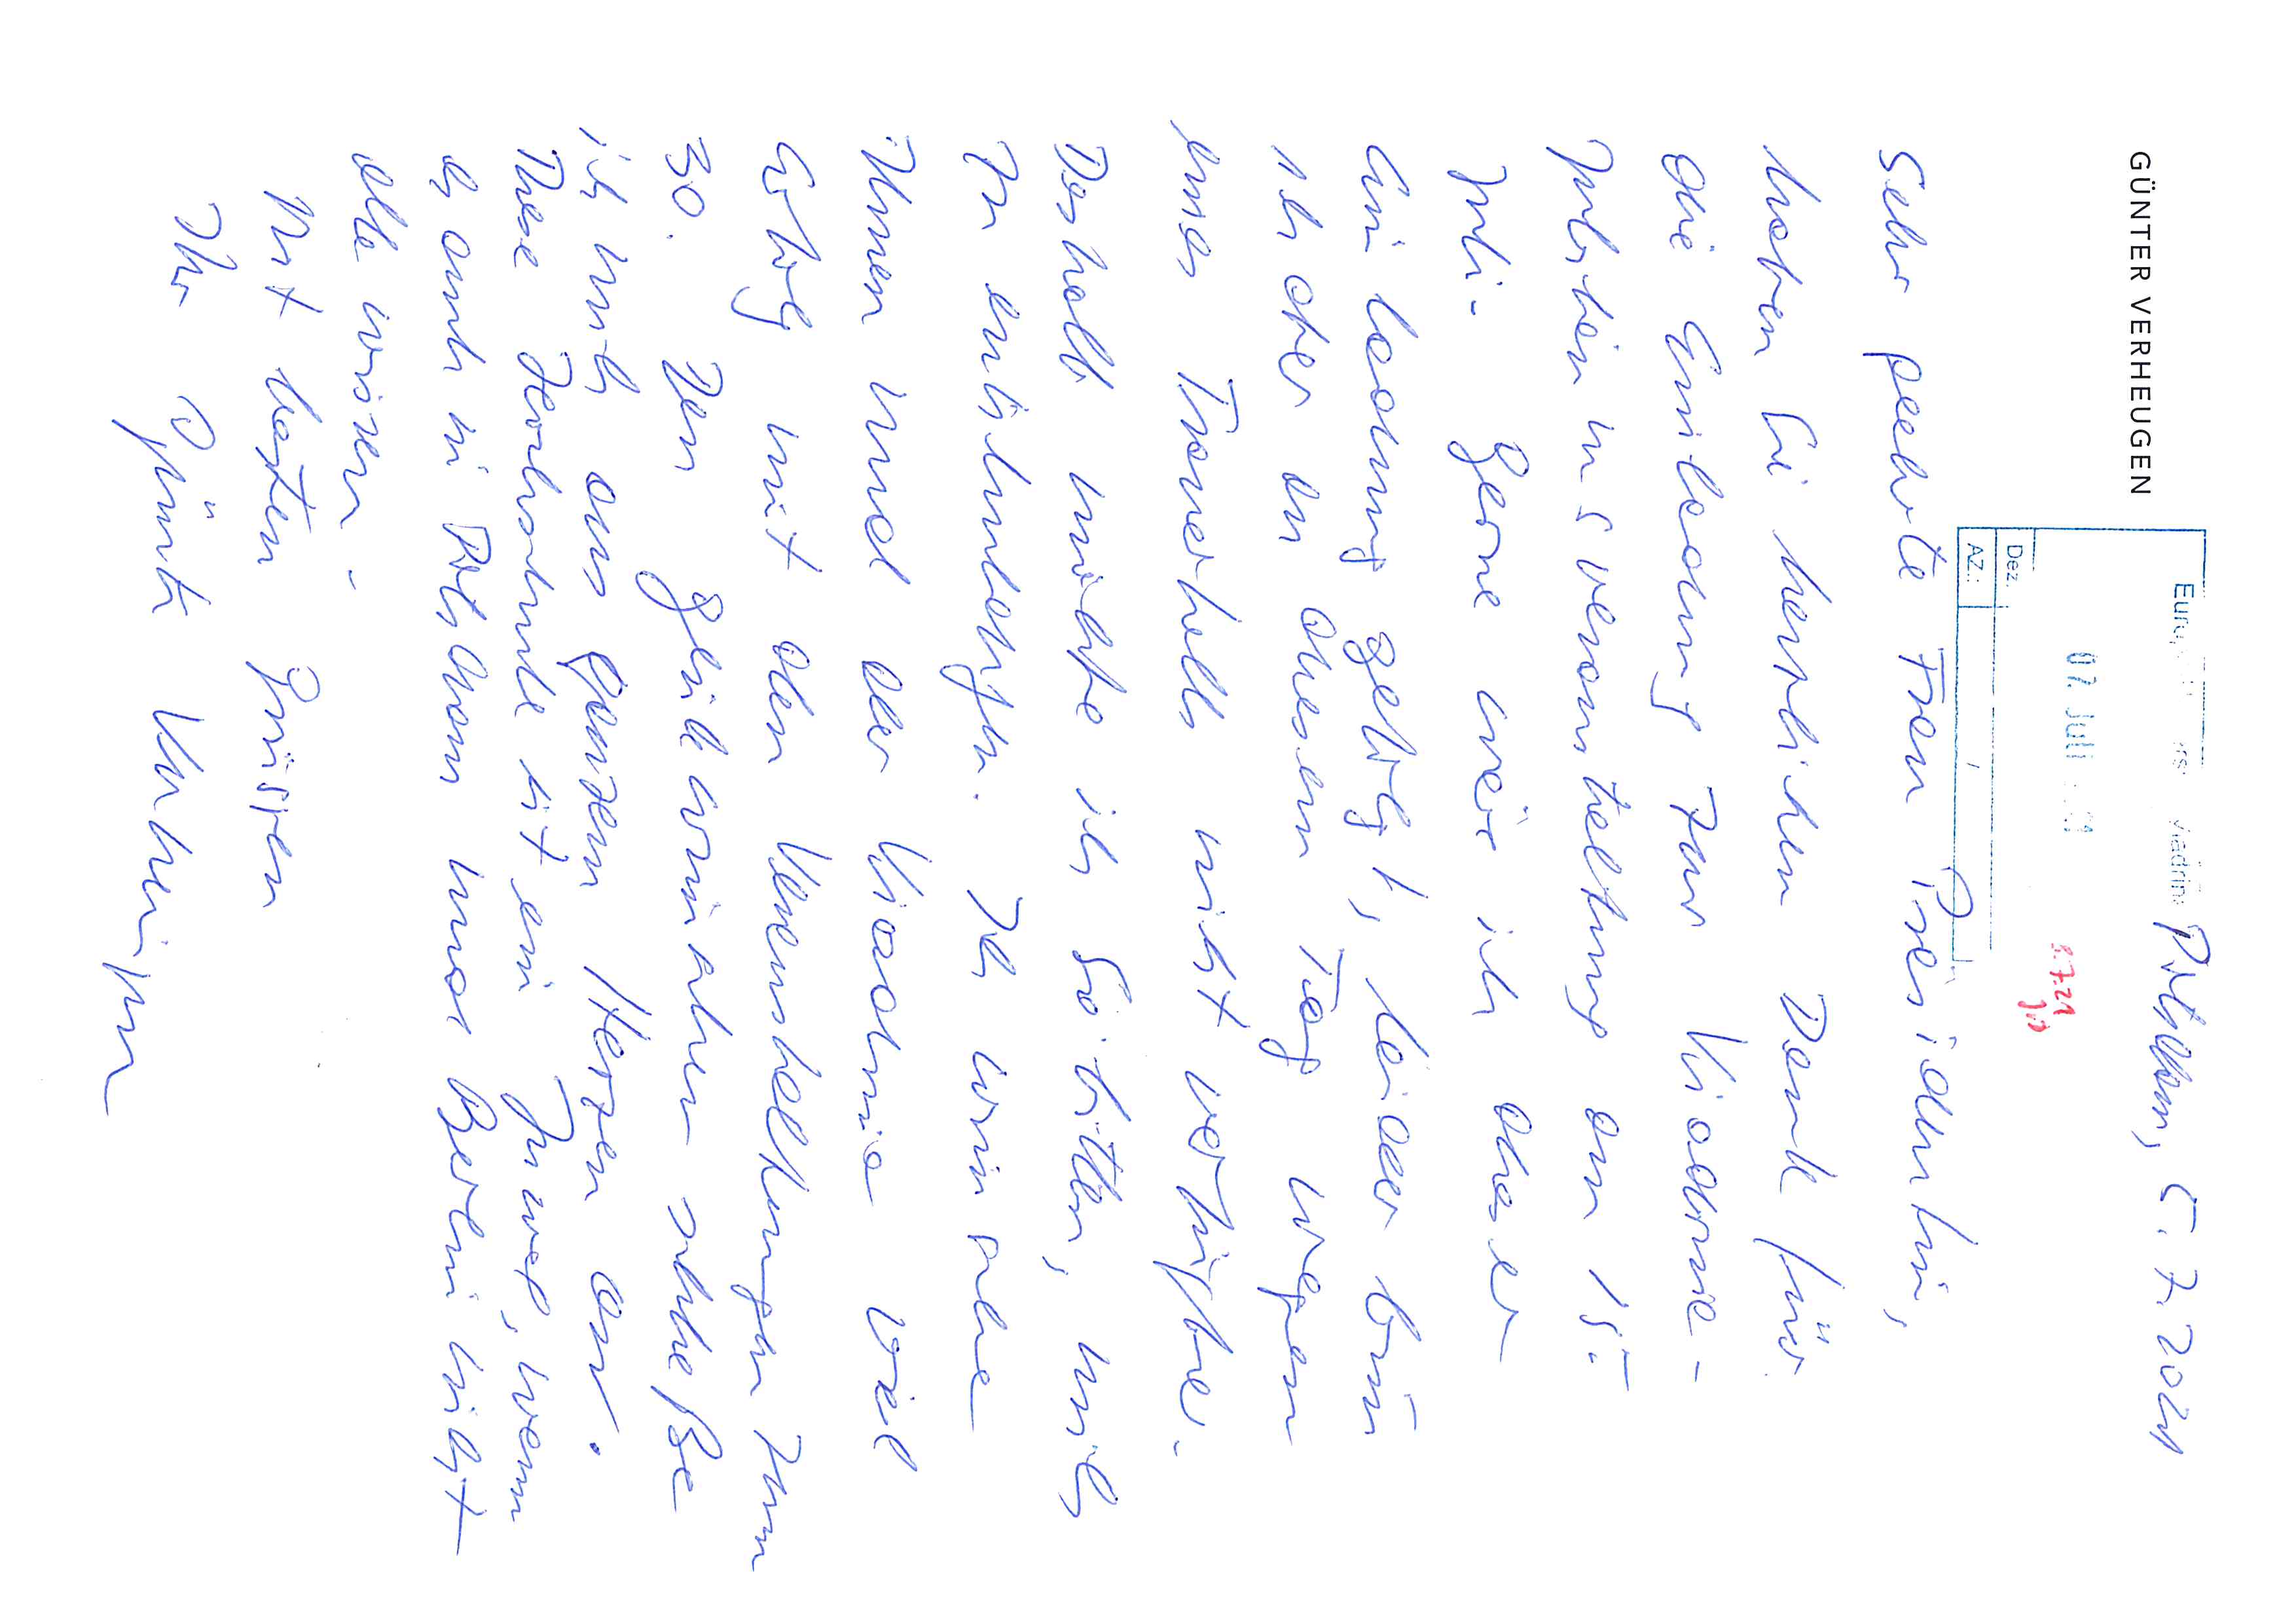 GÜNTER VERHEUGEN
Potsdam, 5.7.2021
Euro
Viadrina
07. JULI
8.7.21
Dez.
AZ.:
Sehr geehrte Frau Präsidentin,
haben Sie herzlichen Dank für
die Einladung zur Viadrina-
Jubiläumsveranstaltung am 15.
Juli. Gerne wär ich dieser
Einladung gefolgt, leider bin
ich aber an diesem Tag wegen
eines Trauerfalls nicht verfügbar.
Deshalb möchte ich Sie bitten, mich
zu entschuldigen. Ich wünsche
Ihnen und der Viadrina viel
Erfolg mit den Veranstaltungen zum
30. Den Glückwünschen schließe
ich mich aus ganzem Herzen an.
Diese Hochschule ist ein Juwel, wenn
es auch in Potsdam und Berlin nicht
alle wissen.
Mit besten Grüßen
Ihr Günter Verheugen